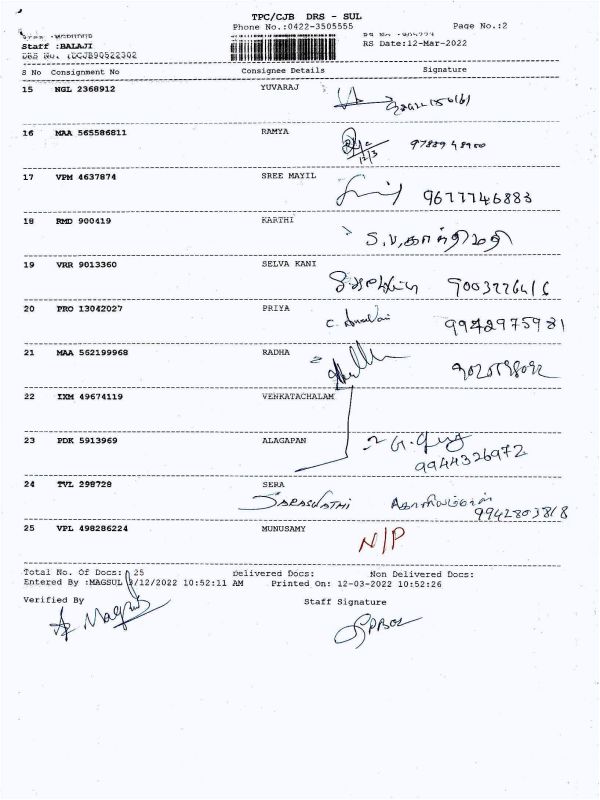 TPC/CJB DRS - SUL
Phone No.:0422-3505555 Page No.:2
Staff :BALAJI RS Date:12-Mar-2022
DRS No. :DCJB90522302
S No Consignment No Consignee Details Signature
15 NGL 2368912 YUVARAJ
16 MAA 565586811 RAMYA
12/3
17 VPM 4637874 SREE MAYIL 9677746883
18 RMD 900419 KARTHI
S.V.காந்திமதி
19 VRR 9013360 SELVA KANI
20 PRO 13042027 PRIYA
9942975981
21 MAA 562199968 RADHA
22 IXM 49674119 VENKATACHALAM
23 PDK 5913969 ALAGAPAN
9944326972
24 TVL 298728 SERA
SARASWATHI 9942803818
25 VPL 498286224 MUNUSAMY N/P
Total No. Of Docs: 25 Delivered Docs: Non Delivered Docs:
Entered By :MAGSUL 3/12/2022 10:52:11 AM Printed On: 12-03-2022 10:52:26
Verified By Staff Signature